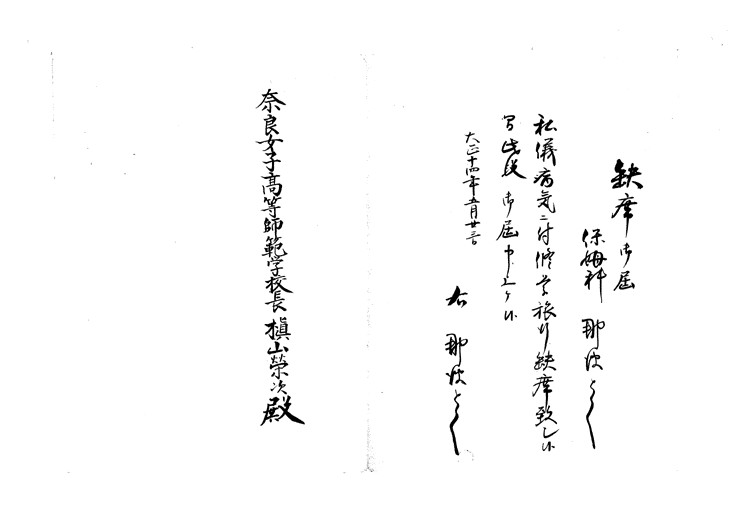 缺席御届
保姆科 那波とく
私儀病気ニ付修学旅行缺席致し候
間此段御届申上ケ候
大正十四年五月廿三日
右 那波とく
奈良女子高等師範学校長 槇山榮次殿